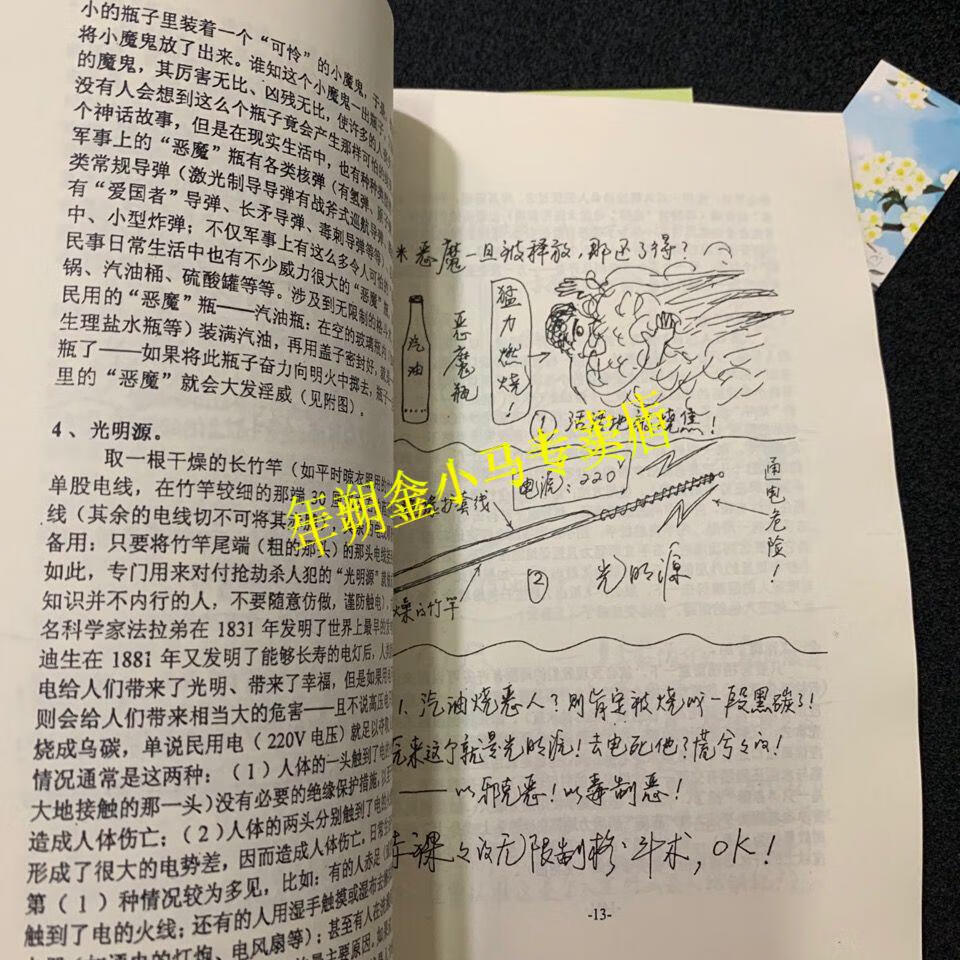 小的瓶子里装着一个“可怜”的小魔鬼,于是
将小魔鬼放了出来。谁知这个小魔鬼一出瓶子
的魔鬼,其厉害无比、凶残无比,使许多的人
没有人会想到这么个瓶子竟会产生那样可怕的
个神话故事,但是在现实生活中,也有种种
军事上的“恶魔”瓶有各类核弹(有氢弹、原
类常规导弹(激光制导导弹有战斧式巡航导弹
有“爱国者”导弹、长矛导弹、毒刺导弹等等)
中、小型炸弹;不仅军事上有这么多令人可怕的
民事日常生活中也有不少威力很大的“恶魔”瓶
锅、汽油桶、硫酸罐等等。涉及到无限制的格斗
民用的“恶魔”瓶——汽油瓶:在空的玻璃瓶内
生理盐水瓶等)装满汽油,再用盖子密封好,
瓶了——如果将此瓶子奋力向明火中掷去,瓶子
里的“恶魔”就会大发淫威(见附图)。
4、光明源。
取一根干燥的长竹竿(如平时晾衣
单股电线,在竹竿较细的那端30
线(其余的电线切不可将其
备用:只要将竹竿尾端(粗的那头)的那头电线
如此,专门用来对付抢劫杀人犯的“光明源”
知识并不内行的人,不要随意仿做,谨防触电)
名科学家法拉弟在1831年发明了世界上最早的发
迪生在1881年又发明了能够长寿的电灯后,人
电给人们带来了光明、带来了幸福,但是如果
则会给人们带来相当大的危害——且不说高压电
烧成乌碳,单说民用电(220V电压)就足以夺
情况通常是这两种:(1)人体的一头触到了电
大地接触的那一头)没有必要的绝缘保护措施,以
造成人体伤亡;(2)人体的两头分别触到了电的
形成了很大的电势差,因而造成人体伤亡,日常
第(1)种情况较为多见,比如:有的人赤足
触到了电的火线;还有的人用湿手触摸或湿布去
通电的灯炮、电风扇等);甚至有人在
是主要原因。如果
米 恶魔一旦被释放,那还了得?
汽油
恶魔瓶
猛力燃烧!
① 活活地被烧焦!
电流:220V
套线
通电危险!
② 光明源
燥的竹竿
1.汽油烧恶人?则肯定被烧以一段黑碳了!
元来这个就是光明源!去电死他?
——以邪克恶!以毒制恶!
无限制格斗术,OK!
-13-
年朔金小马专卖店